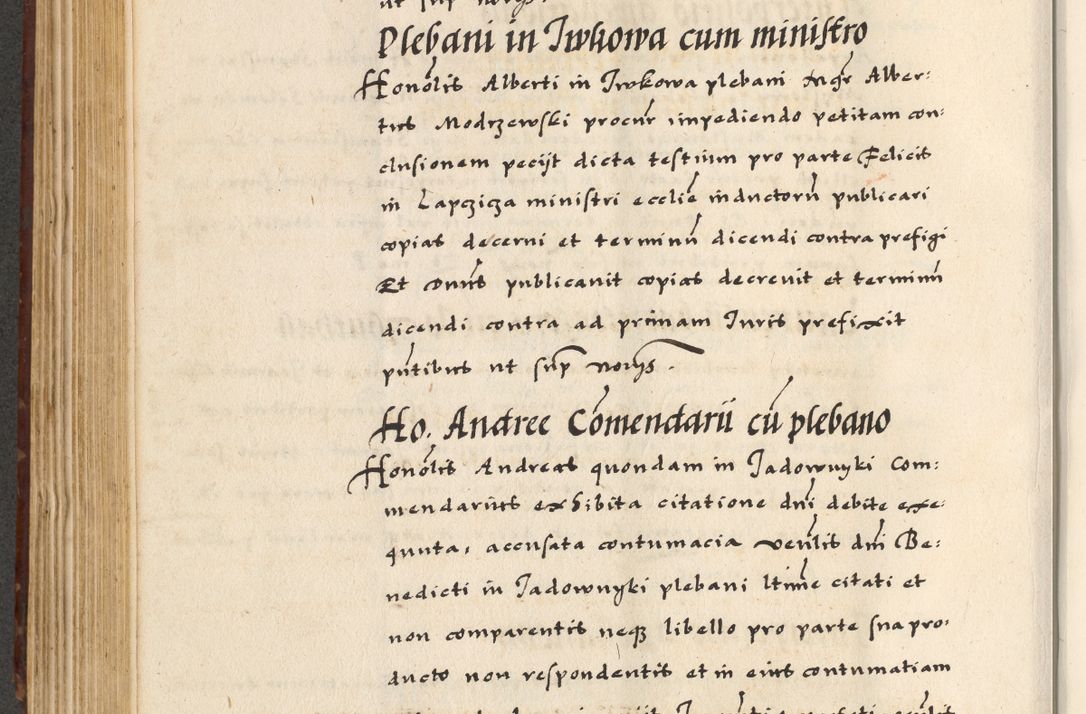 ut sup
Plebani in Iwkowa cum ministro
Honölis Alberti in Iwkowa plebani Mgr Alber:
tus Modrzewski procur impediendo petitam con:
clusionem pecijt dicta testium pro parte Felicis
in Lapczicza ministri ecclie inductorū publicari
copias decerni et terminū dicendi contra prefigi
Et Dnūs publicavit copias decrevit et terminū
dicendi contra ad primam Iuris prefixit
pntibus ut sup
Ho. Andree Cōmendarii cū plebano
Honölis Andreas quondam in Jadownyki Com:
mendarius exhibita citatione dni debite exe:
quuta, accusata contumacia venlis dni Be:
nedicti in Jadownyki plebani ltime citati et
non comparentis neqз libello pro parte sua pro:
ducto non respondentis et in eius contumatiam